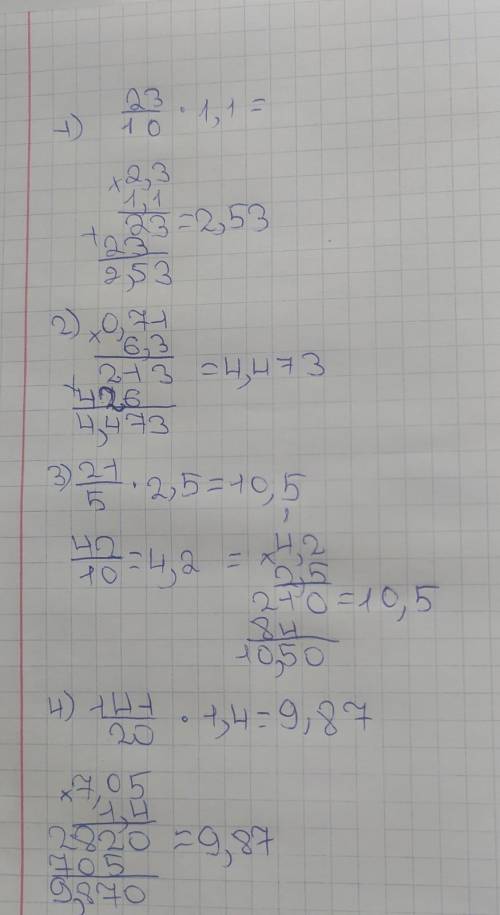 1) 23/10 · 1,1 =
× 2,3
1,1
+ 23 = 2,53
23
2,53
2) × 0,71
6,3
+ 213 = 4,473
426
4,473
3) 21/5 · 2,5 = 10,5
42/10 = 4,2 = × 4,2
2,5
210 = 10,5
84
10,50
4) 141/20 · 1,4 = 9,87
× 7,05
1,4
2820 = 9,87
705
9,870